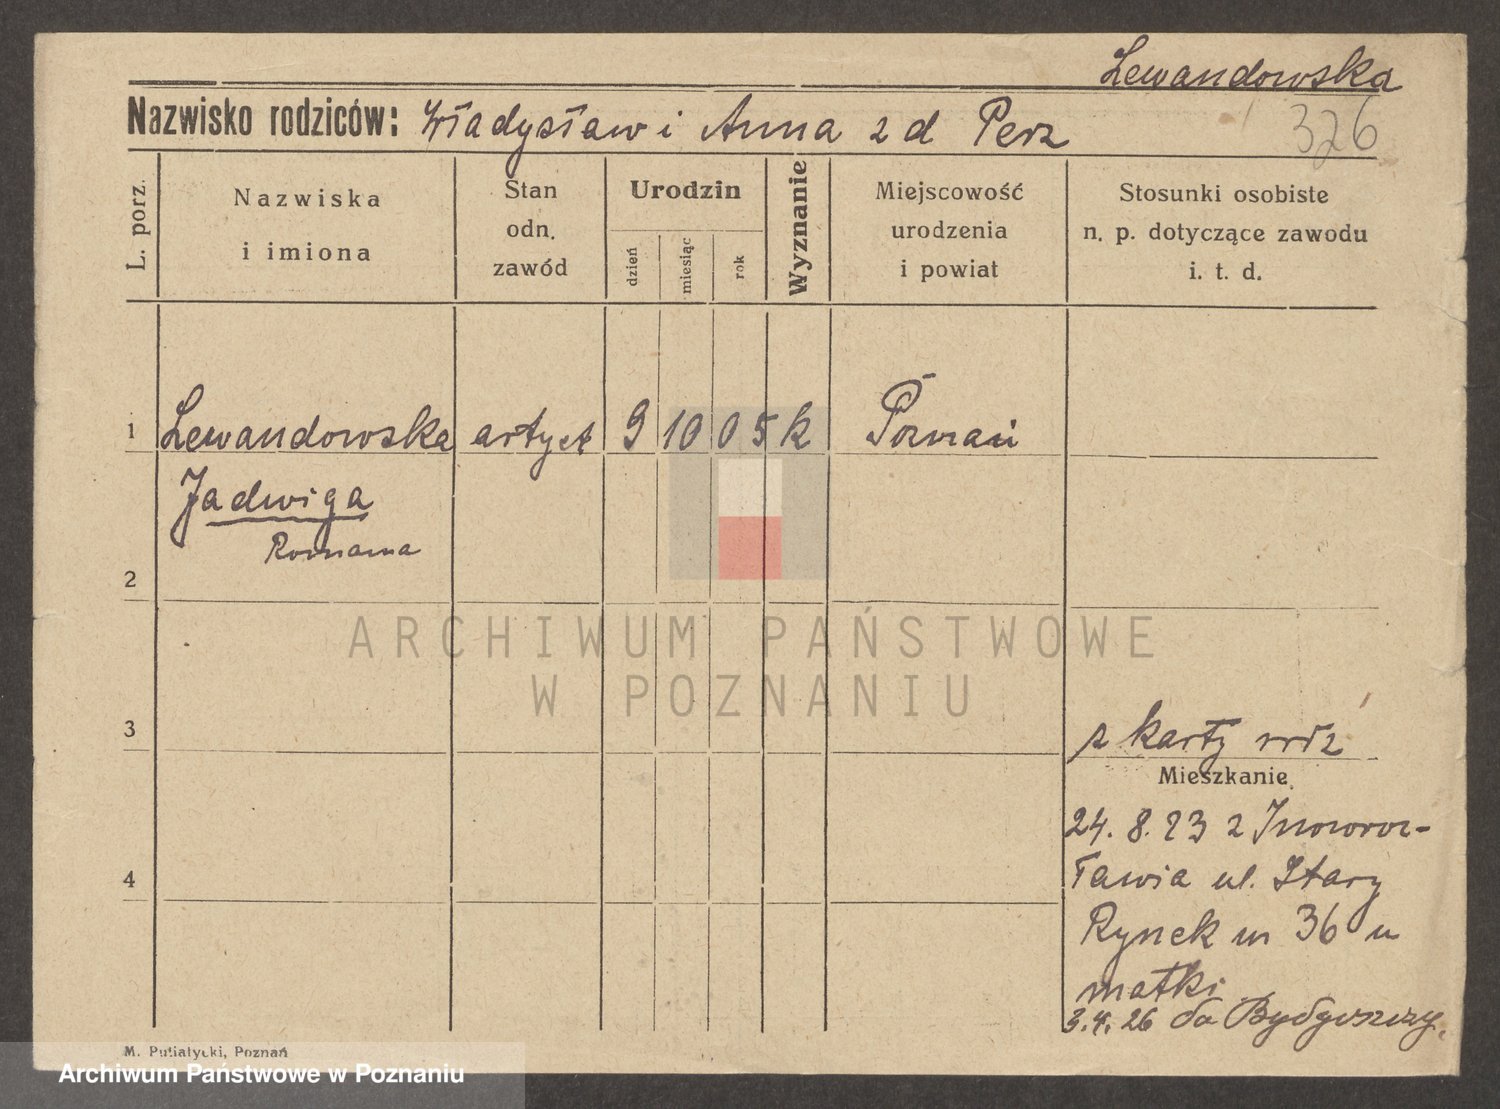 Lewandowska
326
Nazwisko rodziców: Władysław i Anna z d Perz
L. porz.
Nazwiska
i imiona
Stan
odn.
zawód
Urodzin
dzień
miesiąc
rok
Wyznanie
Miejscowość
urodzenia
i powiat
Stosunki osobiste
n. p. dotyczące zawodu
i. t. d.
1 Lewandowska artyst 9 10 05 k Poznań
Jadwiga
Romana
2
ARCHIWUM PAŃSTWOWE
W POZNANIU
3
z karty
Mieszkanie.
24. 8. 23 z Inowroc-
ławia ul. Stary
4
Rynek nr 36 u
matki
3.4.26 do Bydgoszczy.
M. Putiatycki, Poznań
Archiwum Państwowe w Poznaniu